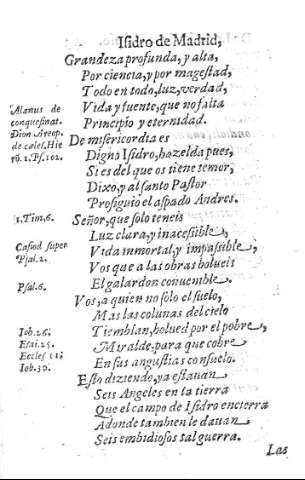 Isidro de Madrid,
Grandeza profunda, y alta,
Por ciencia, y por magestad,
Todo en todo, luz, verdad,
Alanus de
Vida y fuente, que no falta
conquestinat.
Principio y eternidad.
Dion Areop.
De misericordia es
de calest. Hie
Digno Isidro, hazelda pues,
rō. 1. Ps. 102.
Si es del que os tiene temor,
Dixo, y al santo Pastor
Prosiguio el aspado Andres.
1. Tim. 6.
Señor, que solo teneis
Luz clara, y inacesible,
Casiod super
Vida inmortal, y impassible,
Psal. 2.
Vos que a las obras bolueis
Psal. 6.
El galardon conuenible.
Vos, a quien no solo el suelo,
Mas las colunas del cielo
Iob. 26.
Tiemblan, bolued por el pobre,
Esai. 25.
Miralde, para que cobre
Eccles
En sus angustias consuelo.
Iob. 30.
Esto diziendo, ya estauan
Seis Angeles en la tierra
Que el campo de Isidro encierra
Adonde tambien le dauan
Seis embidiosos tal guerra.
Las